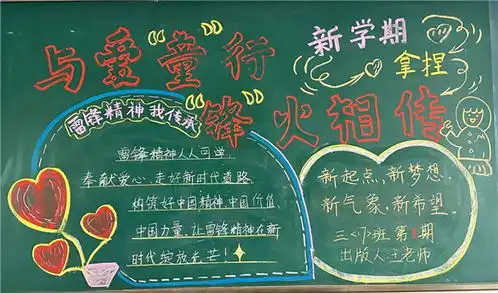 与爱“童”行
“锋”火相传
新学期
拿捏
雷锋精神我传承
雷锋精神人人可学
奉献爱心,走好新时代道路
构筑好中国精神,中国价值
中国力量,让雷锋精神在新
时代绽放光芒!
新起点,新梦想.
新气象,新希望.
三〈7〉班 第1期
出版人:汪老师